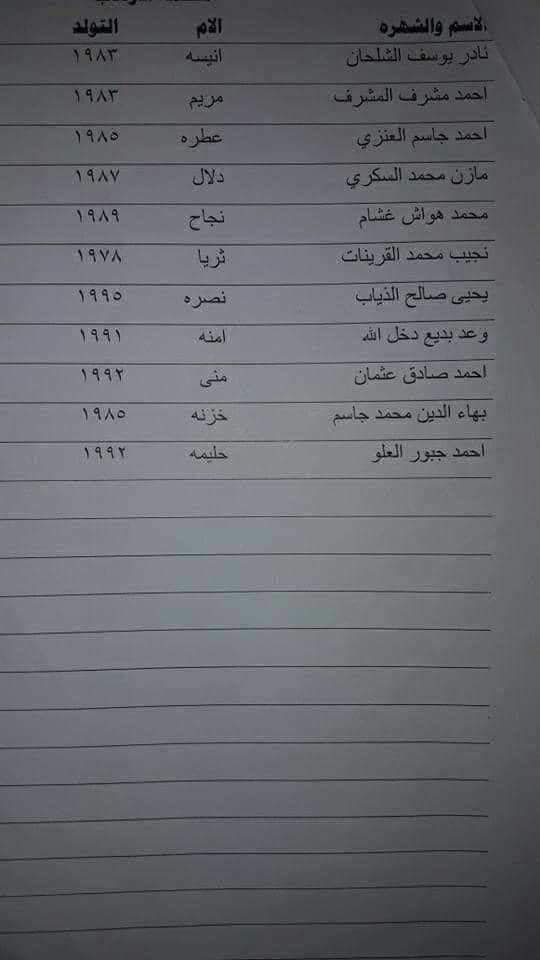 الاسم والشهره الام التولد
نادر يوسف الشلحان انيسه ١٩٨٣
احمد مشرف المشرف مريم ١٩٨٣
احمد جاسم العنزي عطره ١٩٨٥
مازن محمد السكري دلال ١٩٨٧
محمد هواش غشام نجاح ١٩٨٩
نجيب محمد القرينات ثريا ١٩٧٨
يحيى صالح الذياب نصره ١٩٩٥
وعد بديع دخل الله امنه ١٩٩١
احمد صادق عثمان منى ١٩٩٢
بهاء الدين محمد جاسم خزنه ١٩٨٥
احمد جبور العلو حليمه ١٩٩٢